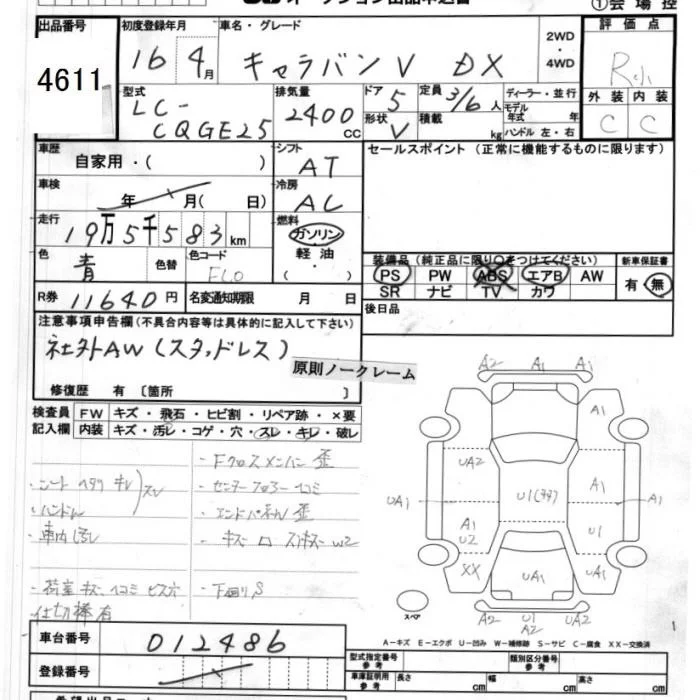 ①会場控
出品番号
4611
初度登録年月
16 4月
車名・グレード
キャラバンV DX
2WD
・
4WD
評価点
R小
外装 内装
C C
型式
LC-
CQGE25
排気量
2400cc
ドア 5
形状 V
定員 3/6人
積載 kg
ディーラー・並行
モデル
年式 年
ハンドル 左・右
車歴
自家用・( )
シフト
AT
セールスポイント (正常に機能するものに限ります)
車検
年 月( 日)
冷房
AC
走行
19万5千583km
燃料
ガソリン
・
軽油
・
( )
色
青
色替
色コード
装備品(純正品に限り○をつけてください)
PS PW ABS エアB AW
SR ナビ TV カワ
新車保証書
有・無
R券 11640円
名変通知期限 月 日
後日品
注意事項申告欄(不具合内容等は具体的に記入して下さい)
社外AW(スタッドレス)
原則ノークレーム
修復歴 有 〔箇所 〕
検査員
記入欄
FW キズ・飛石・ヒビ割・リペア跡・×要
内装 キズ・汚レ・コゲ・穴・スレ・キレ・破レ
・シート ヘタリ キレ
・ハンドル
スレ
・車内汚レ
・荷室 キズ、ヘコミ ビス穴
仕切棒有
・Fクロスメンバー歪
・センターフロアーヘコミ
・エンドパネル歪
・下回りS
A2 A1 A1
A1
UA2
UA1
U1
A1
A1
A1
U2
U1
XX
UA1
UA1
スペア
A2 U1 UA2
A2
A-キズ E-エクボ U-凹み W-補修跡 S-サビ C-腐食 XX-交換済
車台番号
012486
登録番号
型式指定番号
参考
類別区分番号
参考
車庫証明用
参考
長さ cm 幅 cm 高さ cm